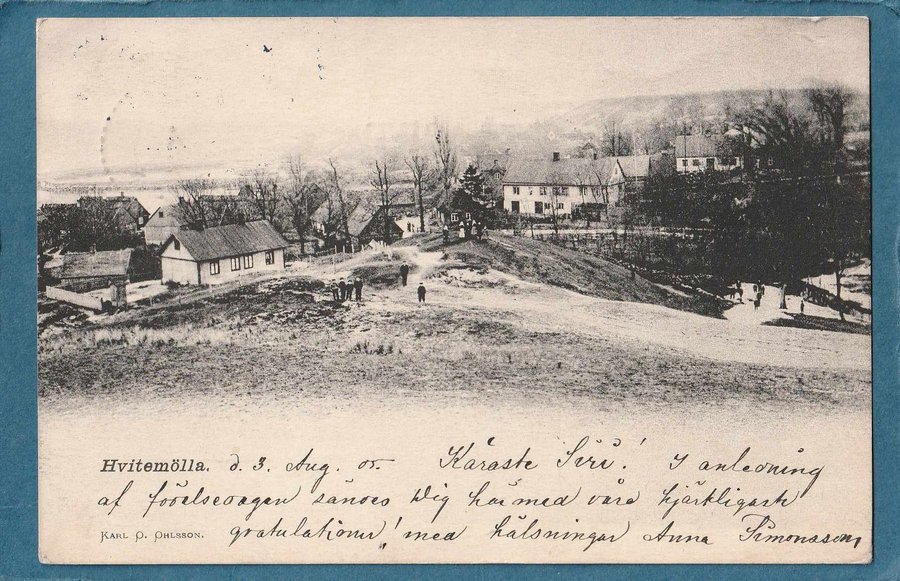 Hvitemölla. d. 3. Aug. 05. Käraste Siri! I anledning
af födelsedagen sändes Dig härmed våra hjärtligaste
Karl O. Ohlsson. gratulationer! med hälsningar Anna Simonsson,